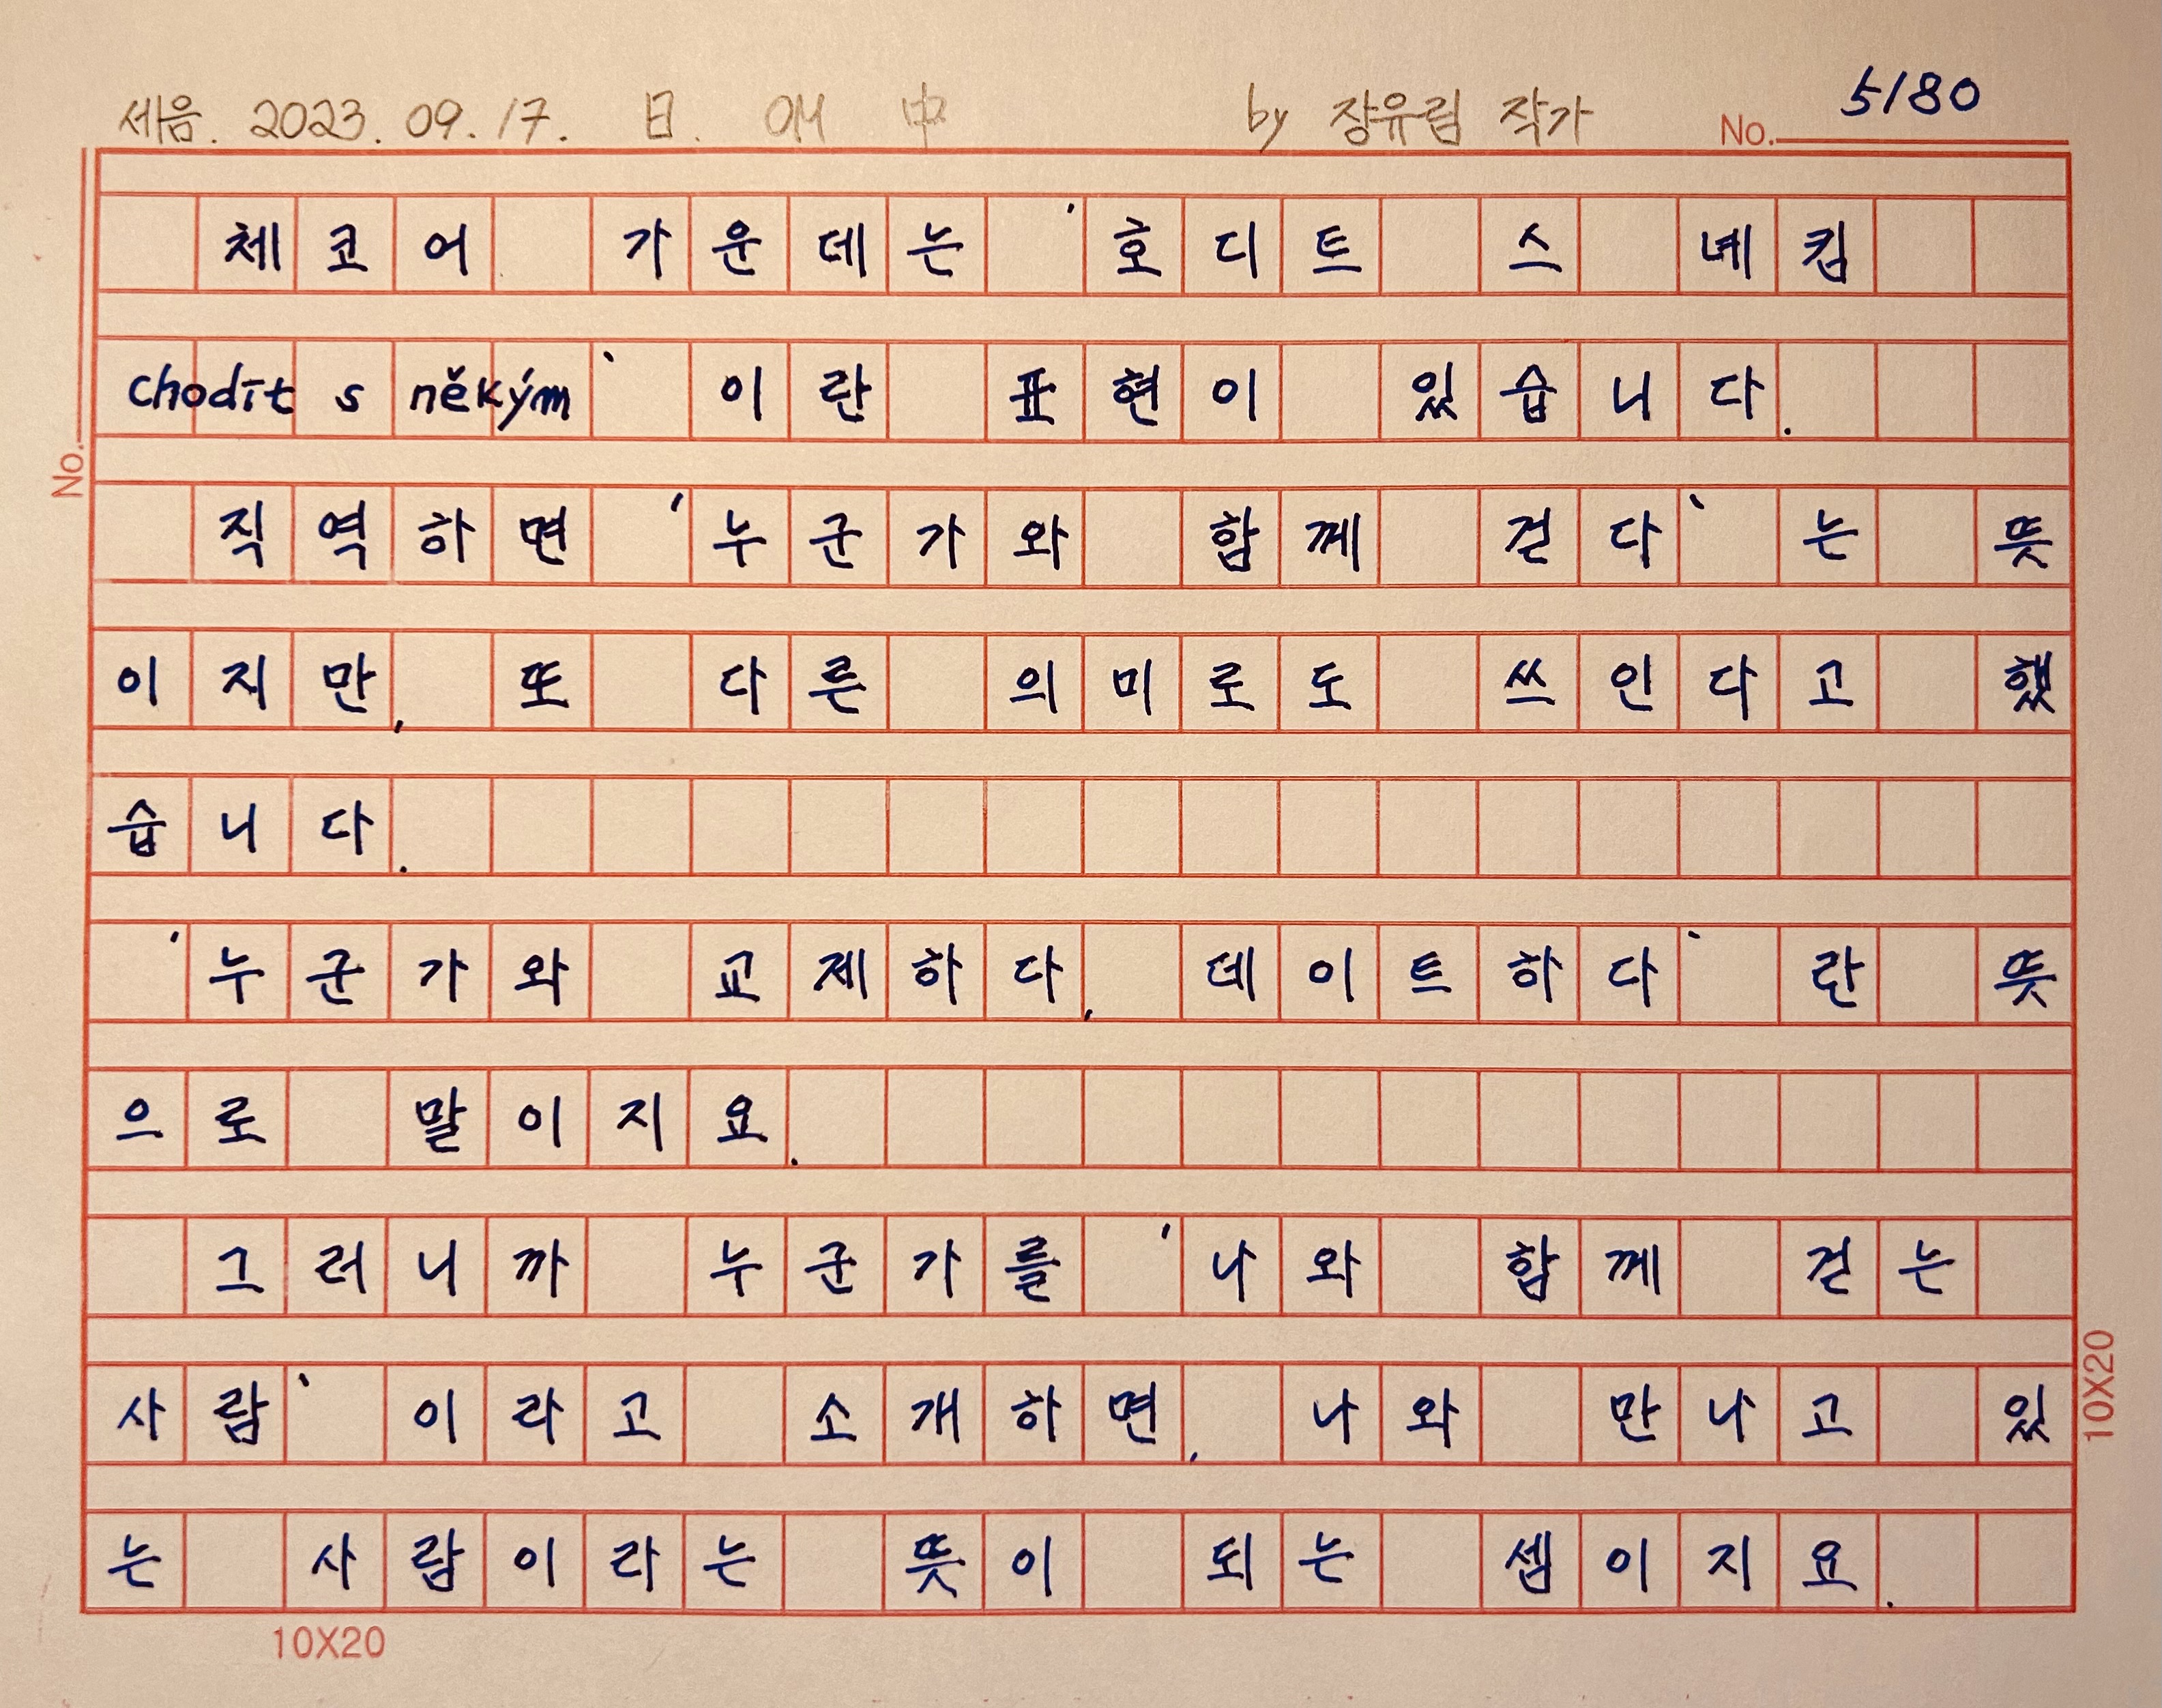 세음. 2023. 09. 17. 日. OM 中 by 장유림 작가 No. 5180
체코어 가운데는 '호디트 스 녜킴
chodit s někým' 이란 표현이 있습니다.
No.
직역하면 '누군가와 함께 걷다' 는 뜻
이지만, 또 다른 의미로도 쓰인다고 했
습니다.
'누군가와 교제하다, 데이트하다' 란 뜻
으로 말이지요.
그러니까 누군가를 '나와 함께 걷는
사람' 이라고 소개하면, 나와 만나고 있
는 사람이라는 뜻이 되는 셈이지요.
10X20
10X20